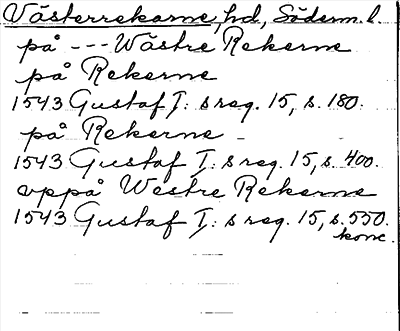 Västerrekarne, hd, Söderm. l.
på --- Wästre Rekerne
på Rekerne
1543 Gustaf I: s reg. 15, s. 180.
på Rekerne
1543 Gustaf I: s reg. 15, s. 400.
vppå Westre Rekerne
1543 Gustaf I: s reg. 15, s. 550.
konc.